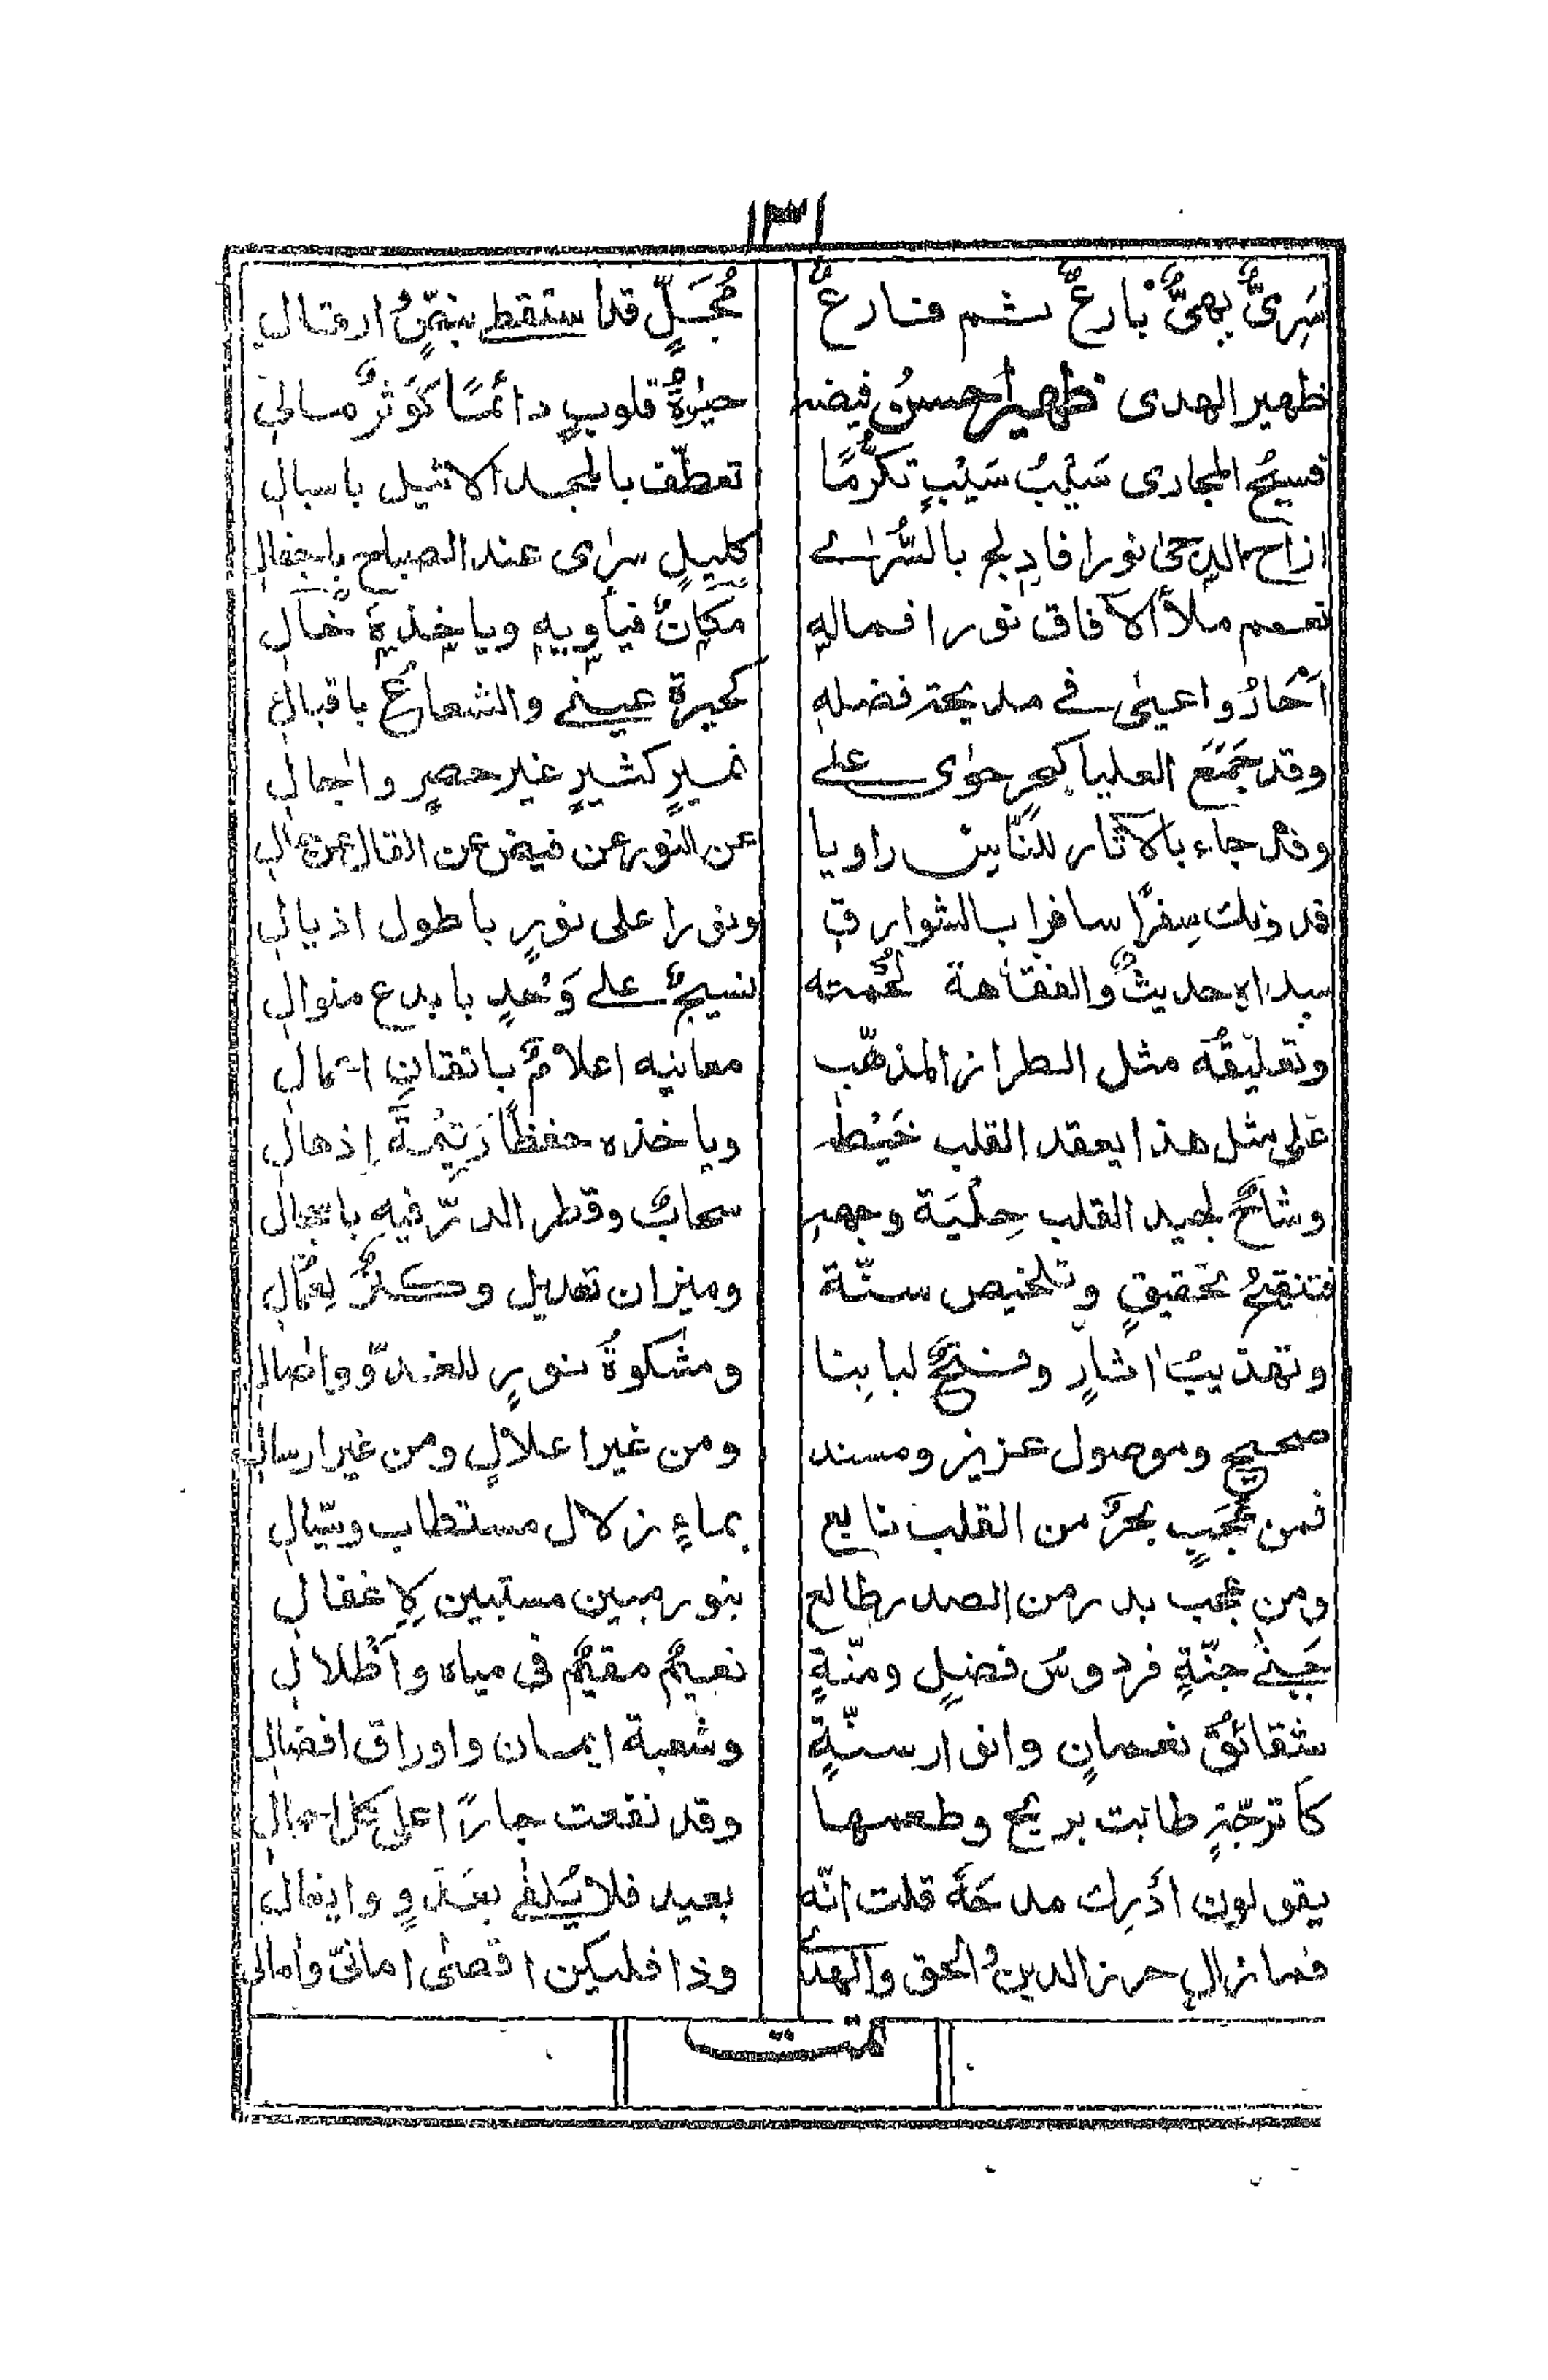 ١٣١
سَرِیٌّ بهیٌّ بارعٌ ثم فارعٌ مُجَلٍّ قدا ستقط بنصٍّ ارقال
ظهیر الهدی ظهیر احسن فیضہ حیٰوةُ قلوبٍ دائمًا کَوثرٌ مسالی
فسیحُ المجاری سَیْبُ سَیْبٍ تکرُّمًا تعطّف بالمجد الاثیل باسبال
ازاح الدجیٰ نورا فادلج بالسُّریٰ کلیلٍ سرٰی عند الصباح باجفال
نعم ملأ الافاق نورا فمالہ مکانٌ فیأویہ ویاخذہٗ خال
اَحَارُ واعییٰ فی مدیحۃ فضلہ کحیرة عینی والشعاعُ باقبال
وقد جَمَعَ العلیا کبحر حوٰی علی نمیرٍ کثیرٍ غیر حصرٍ واجمال
وقد جاء بالاٰثار للنّاس راویا عن النور عن فیض عن القال عن حال
قد ذیلت سِفرًا سافرا بالشوارق ونورا علی نورٍ باطول اذیال
سداہ احدیثٌ والفقاهة لُحمته نسیجٌ علی وَحدٍ بابدع منوال
وتعلیقُہ مثل الطراز المذهّب معانیه اعلامٌ باتقان اكمال
علی مثل هذا یعقد القلب خَیْطہ ویاخذہ حفظًا رَتِیْمَۃَ اِذهال
وشاحٌ لجید القلب حِلْیَة وجهہ سحابٌ وقطر الدرّ فیه باسجال
فتنقیحُ تحقیقٍ وتلخیص سنّة ومیزان تعدیل وکنزٌ لِعمّال
وتهذیبُ اٰثارٍ وفتحٌ لبابنا ومشکوةُ نورٍ للغدوّ واٰصال
صحیح وموصول عزیز ومسند ومن غیر اعلالٍ ومن غیر ارسال
فمن عَجَبٍ بحرٌ من القلب نابع بماءٍ زلال مستطاب وسیّال
ومن عجب بدر من الصدر طالع بنور مبین مستبین لِاغفال
جَنیٰ جنّةٍ فردوسُ فضلٍ ومنّةٍ نعیمٌ مقیمٌ فی میاہ واَظْلال
شقائقُ نعمانٍ وانوار سنّةٍ وشعبة ایمان واوراق افضال
کاترجّۃٍ طابت بریح وطعمها وقد نفعت جارًا علی کل احوال
یقولون اَدْرِك مدحَہٗ قلت انّہ بعید فلا یُلفیٰ بعَدْوٍ وایغال
فما زال حرز الدین والحق والهدیٰ وذا فلیکن اقصٰی امانیّ واٰمالی
تمت